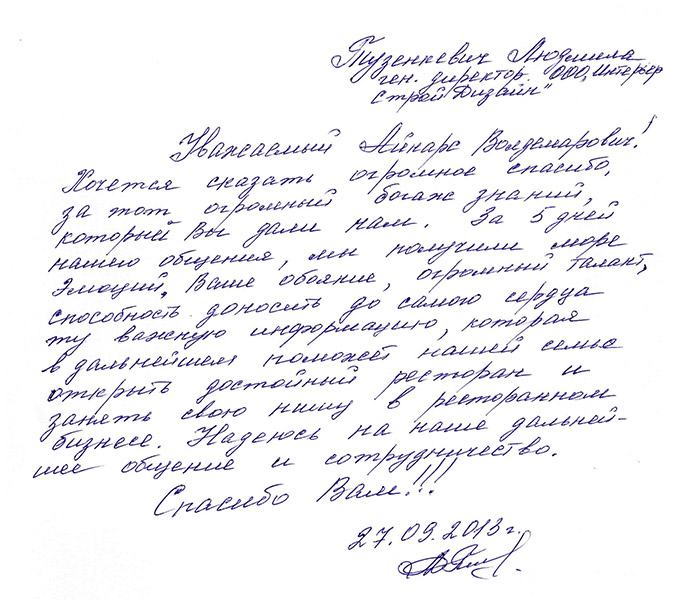 Тузенкевич Людмила
ген. директор. ООО „Интерьер
Строй Дизайн"
Уважаемый Айнарс Волдемарович!
Хочется сказать огромное спасибо,
за тот огромный богаж знаний,
который Вы дали нам. За 5 дней
нашего общения, мы получили море
Эмоций, Ваше обояние, огромный талант,
способность доносить до самого сердца
ту важную информацию, которая
в дальнейшем поможет нашей семье
открыть достойный ресторан и
занять свою нишу в ресторанном
бизнесе. Надеюсь на наше дальней-
шее общение и сотрудничество.
Спасибо Вам!!!
27.09.2013 г.